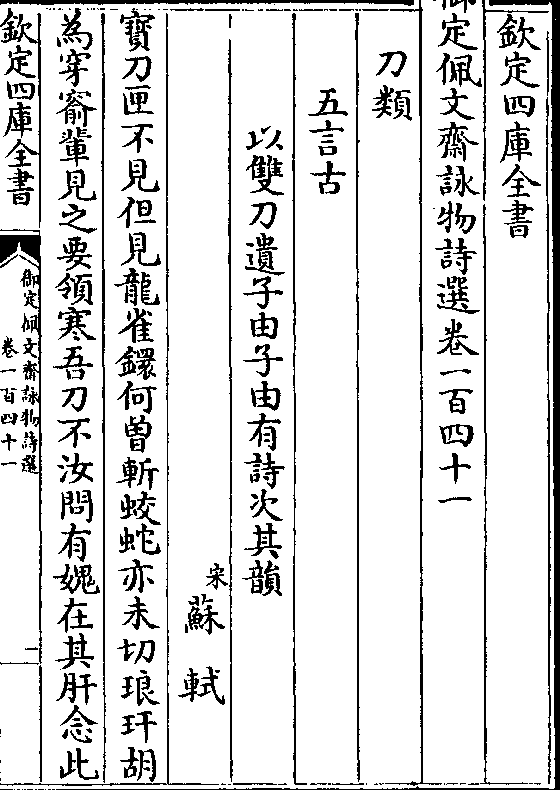 欽定四庫全書
御定佩文齋詠物詩選卷一百四十一
刀類
五言古
以雙刀遺子由子由有詩次其韻
宋蘇軾
寶刀匣不見但見龍雀鐶何曽斬蛟蛇亦未切琅玕胡
為穿窬輩見之要領寒吾刀不汝問有媿在其肝念此
欽定四庫全書
御定佩文齋詠物詩選
卷一百四十一
一